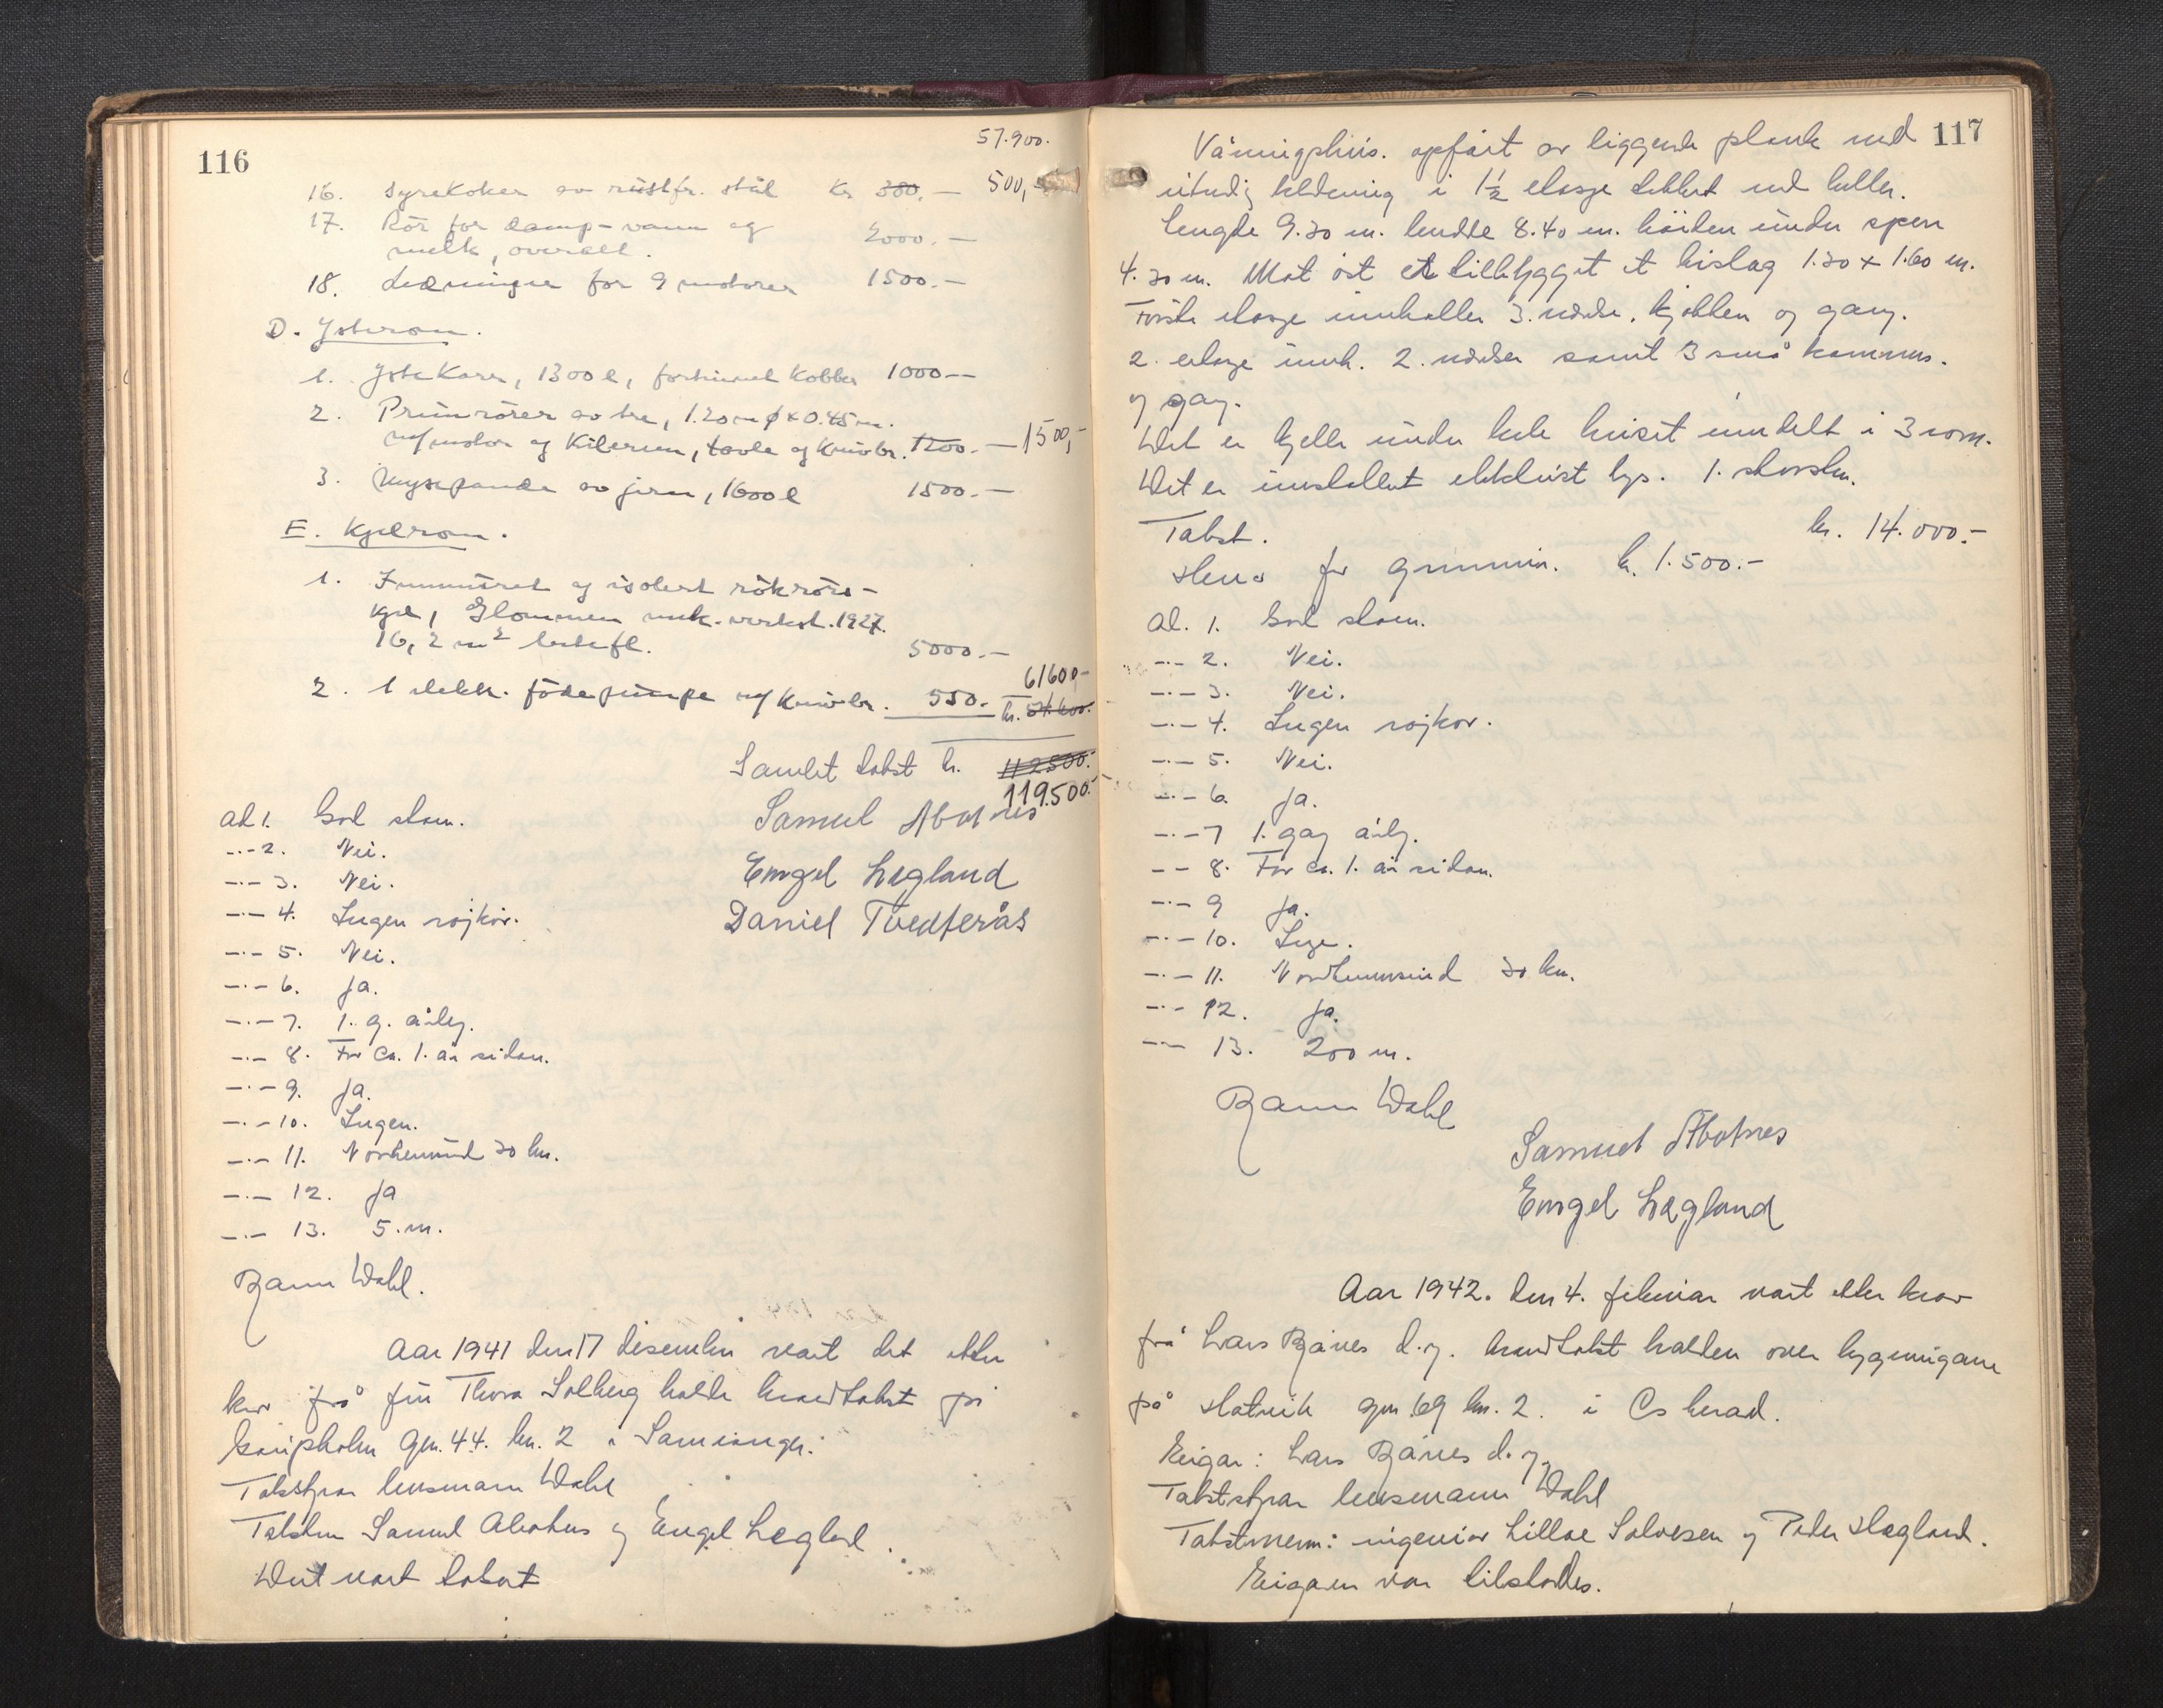 116
57.900.
16. Syrekoker av rustfr. stål kr 300.— 500,—
17. Rör for damp-vann og
melk, overalt. 2000.—
18. Ledninger for 9 motorer 1500.—
D. Ysterom.
1. Ystekarr, 1300 l, fortinnet kobber 1000—
2. Primrörer av tre, 1.20 m ø x 0.45 m.
m/motor og Kilerem, tavle og knivbr. 1200.— 1500,-
3. Mysepande av jern, 1600 l 1500.—
E. Kjelrom.
1. Innmuret og isolert rökrörs-
kjel, Glommen mek. verkst. 1927.
16,2 m² hetefl. 5000.—
2. 1 elektr. födepumpe m/ knivbr. 550.- 61600-
kr. 54.600.-
Samlet takst kr. 112500.-
119.500.-
Samuel Abotnes
Engel Lægland
Daniel Tvedterås
ad 1. God stom.
-·-2. Nei.
-·- 3. Nei.
-·- 4. Ingen rojkor.
-·- 5. Nei.
-·- 6. Ja.
-·- 7. 1. g. årleg.
-·- 8. For ca. 1. år sidan.
-·- 9. Ja.
-·- 10. Ingen.
-·- 11. Norheimsund 30 km.
-·- 12. Ja
-·- 13. 5. m.
Wahl.
Aar 1941 den 17 desember vart det etter
krav frå fru Thora Solberg halde brandtakst på
gnr. 44. bn. 2 i Samnanger.
Takststyrar lensmann Wahl
Takstm Samuel Abotnes og Engel Lægland.
Det vart taksert
117
Våningshus. opfört av liggende plank med
utvendig kledning i 1½ etasje tekket med heller.
Lengde 9.30 m. bredde 8.40 m. höiden under sperr
4.30 m. Mot öst er tilbygget et bislag 1.30 x 1.60 m.
Förste etasje inneholler 3. værelse. kjökken og gang.
2. etasje inneh. 2. værelser samt 3 små kammers.
og gang.
Det er kjeller under hele huset inndelt i 3 rom.
Det er installert elektrist lys. 1. skorstein.
Takst. kr. 14.000.-
Herav for grunnmur. kr. 1.500.-
ad. 1. God stom.
-·- 2. Nei.
-·- 3. Nei.
-·- 4. Ingen rojkor.
-·- 5. Nei.
-·- 6. Ja.
-·- 7 1. gang årleg.
-- 8. For ca. 1. år sidan.
-·- 9 Ja.
-·- 10. Ingen.
-·- 11. Nordheimsund 30 km.
-·- 12. Ja.
-·- 13. 200 m.
Wahl
Samuel Abotnes
Engel Lægland
Aar 1942. den 4. februar vart etter krav
frå Lars Bjånes d.y. brandtakst halden over bygningane
på Hatvik gnr. 69 bn. 2. i Os herad.
Eigar: Lars Bjånes d.y.
Takststyrar lensmann Wahl
Takstmenn: ingeniør Salvesen og Peder Hagland.
Eigaren var tilstades.